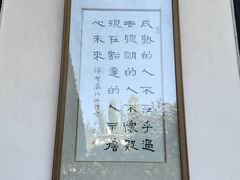 成熟的人不在乎過
去聰明的人不懷疑
現在豁達的人不擔
心未來